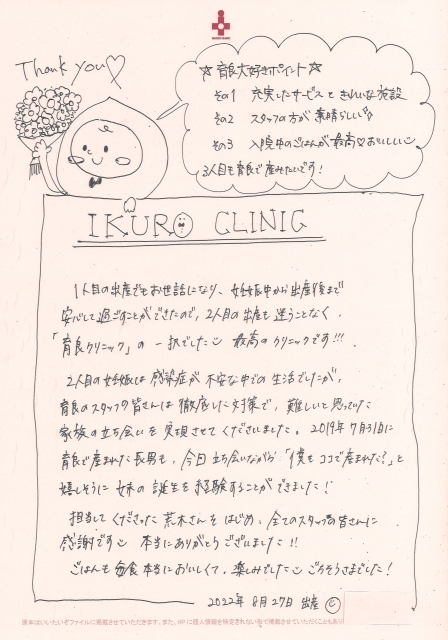 Thank you♡
☆育良大好きポイント☆
その1 充実したサービスときれいな施設
その2 スタッフの方が素晴らしい
その3 入院中のごはんが最高♡おいしい
3人目も育良で産みたいです!
IKURO CLINIC
1人目の出産でもお世話になり、妊娠中から出産後まで
安心して過ごすことができたので、2人目の出産も迷うことなく、
「育良クリニック」の一択でした 最高のクリニックです!!!
2人目の妊娠は感染症が不安な中での生活でしたが、
育良のスタッフの皆さんは徹底した対策で、難しいと思っていた
家族の立ち会いを実現させてくださいました。2019年7月31日に
育良で産まれた長男も、今日立ち会いながら「僕もココで産まれた?」と
嬉しそうに妹の誕生を経験することができました!
担当してくださった荒木さんをはじめ、全てのスタッフの皆さんに
感謝です 本当にありがとうございました!!
ごはんも毎食本当においしくて、楽しみでした ごちそうさまでした!
2022年8月27日 出産
原本はいいたいぞファイルに掲載させていただきます。また、HPに個人情報を特定されない形で掲載させていただくこともあり